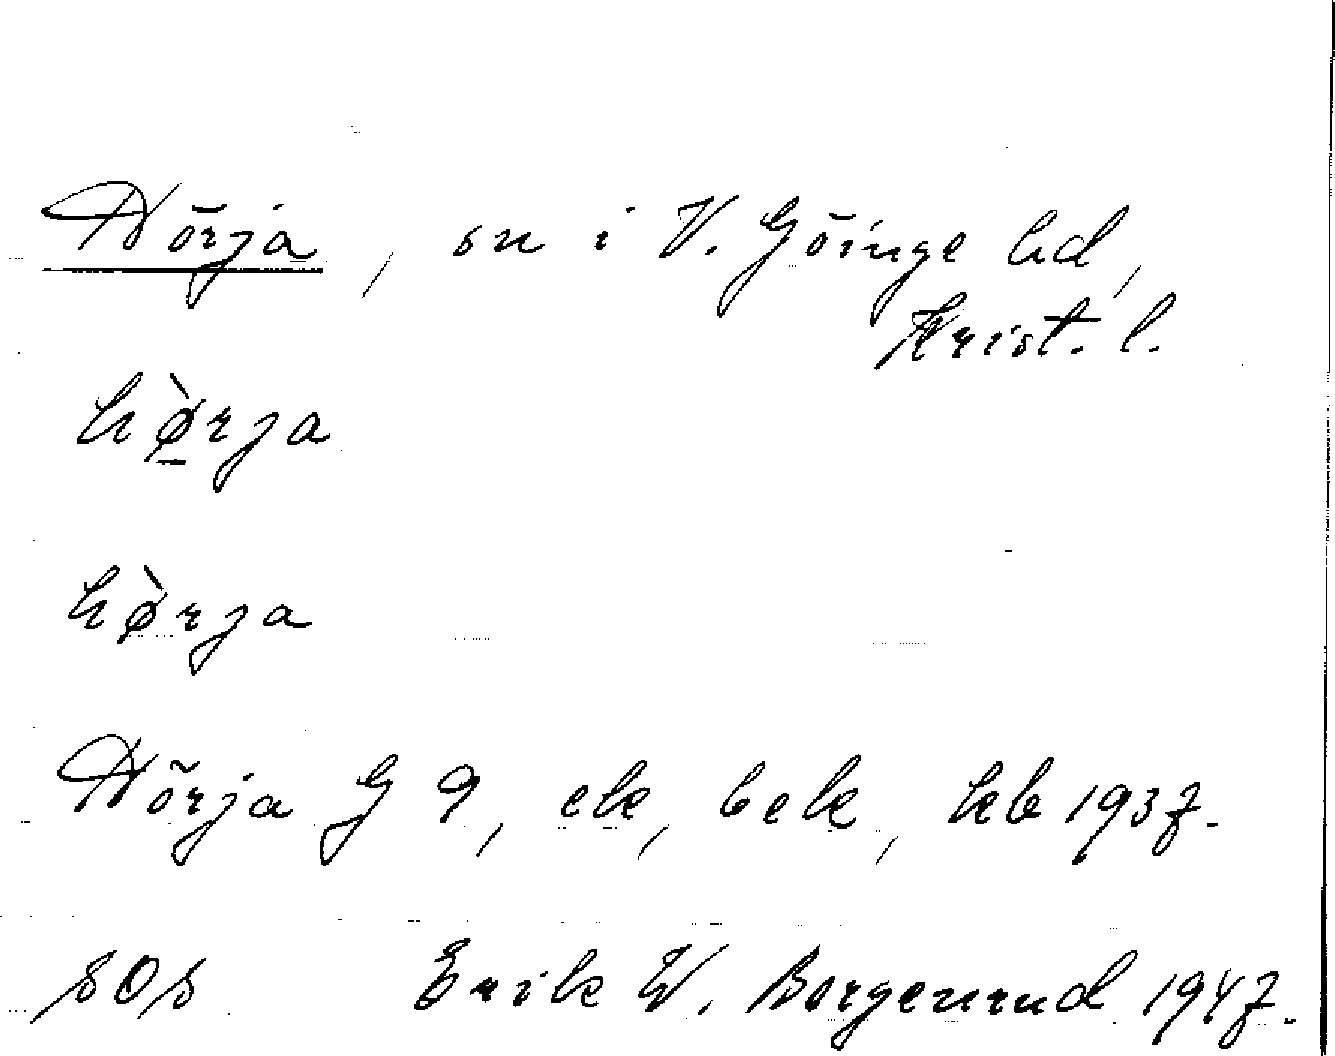 Hörja, sn i V. Göinge hd,
Krist. l.
hø̠̀rja
hø̀rja
Hörja G 9, ek, bek, kb 1937.
SOS Erik W. Borgenrud 1947.